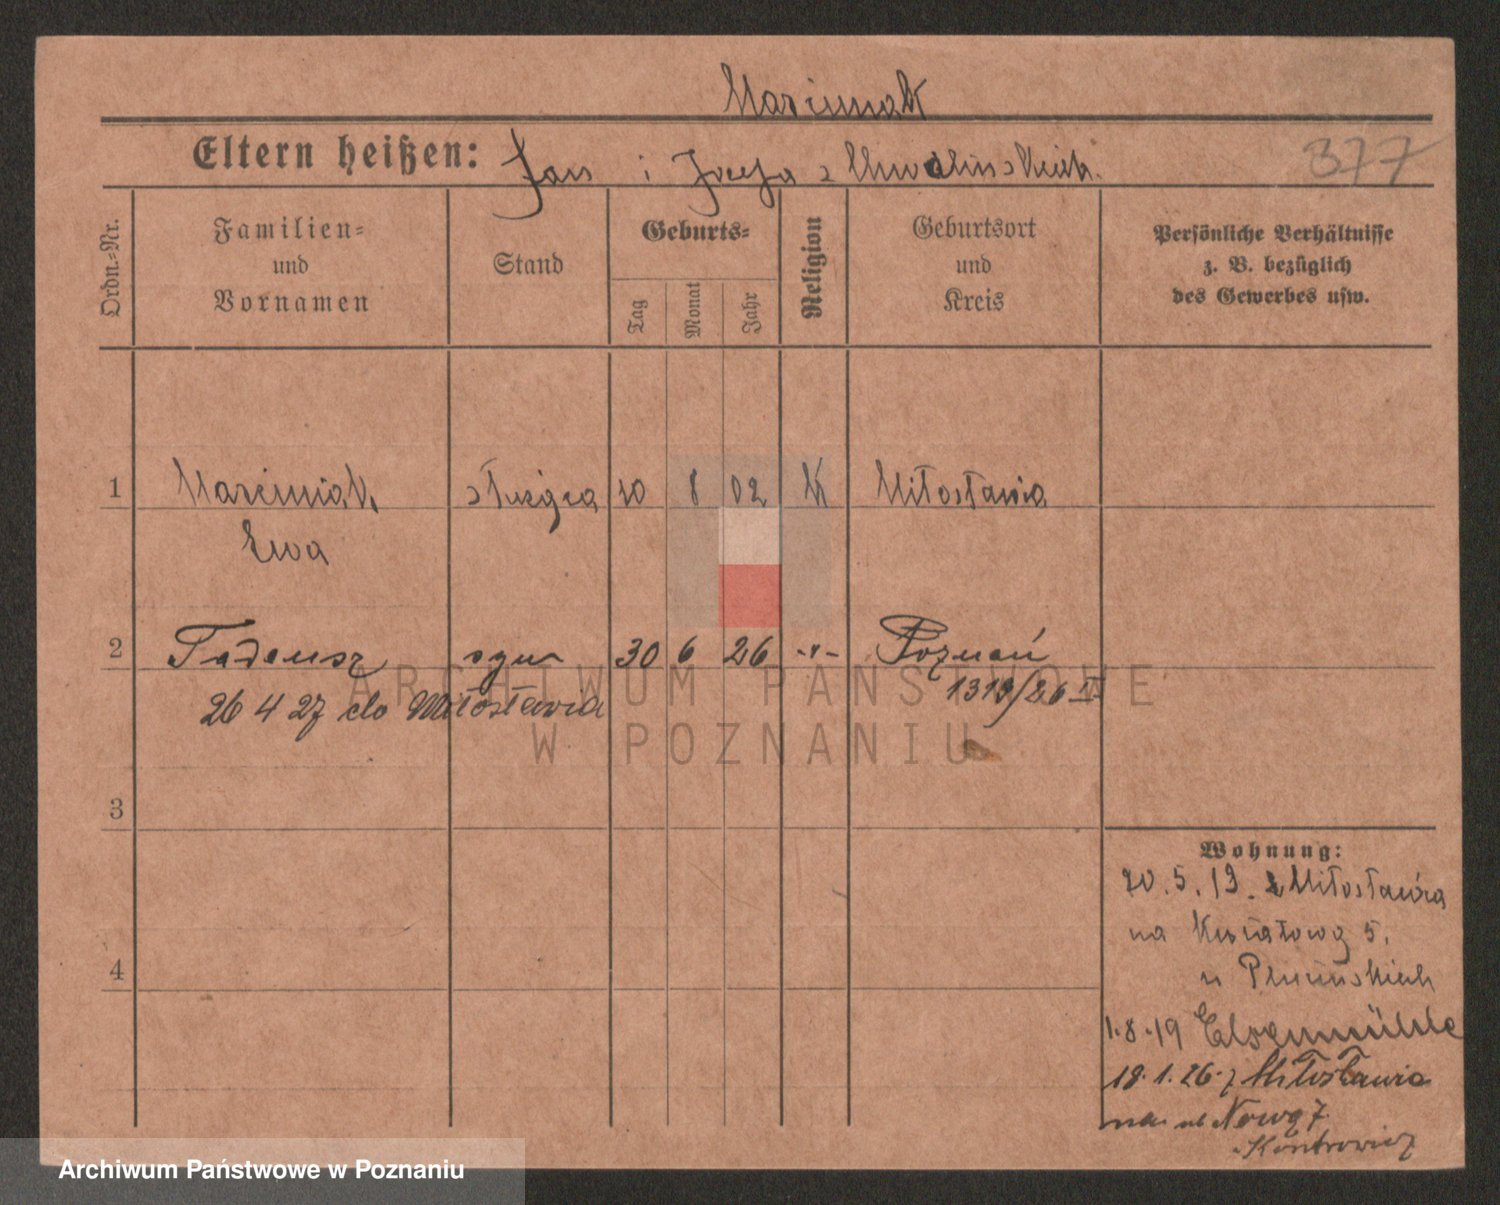 Marciniak
Eltern heißen: Jan i Józefa z Chwalińskich.
377
Ordn.-Nr.
Familien-
und
Vornamen
Stand
Geburts-
Tag
Monat
Jahr
Religion
Geburtsort
und
Kreis
Persönliche Verhältnisse
z. B. bezüglich
des Gewerbes usw.
1 Marciniak służąca 10 8 02 K Miłosławia
Ewa
2 Tadeusz syn 30 6 26 -"- Poznań
26 4 27 do Miłosławia 1313/26 II
ARCHIWUM PAŃSTWOWE
W POZNANIU
3
Wohnung:
20.5.19. z Miłosławia
na Kwiatową 5.
u
4
1.8.19 Elsenmühle
18.1.26. z Miłosławia
na ul Nową 7
Kantrowicz
Archiwum Państwowe w Poznaniu